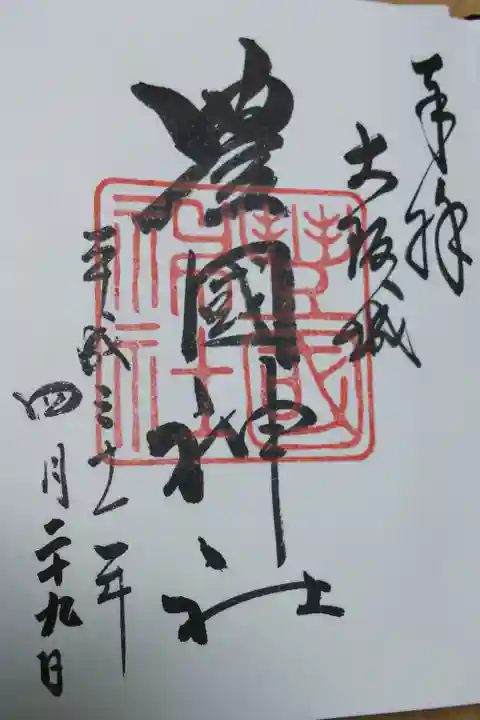 奉拝
大阪城
豊國神社
平成三十一年
四月二十九日
豊國神社